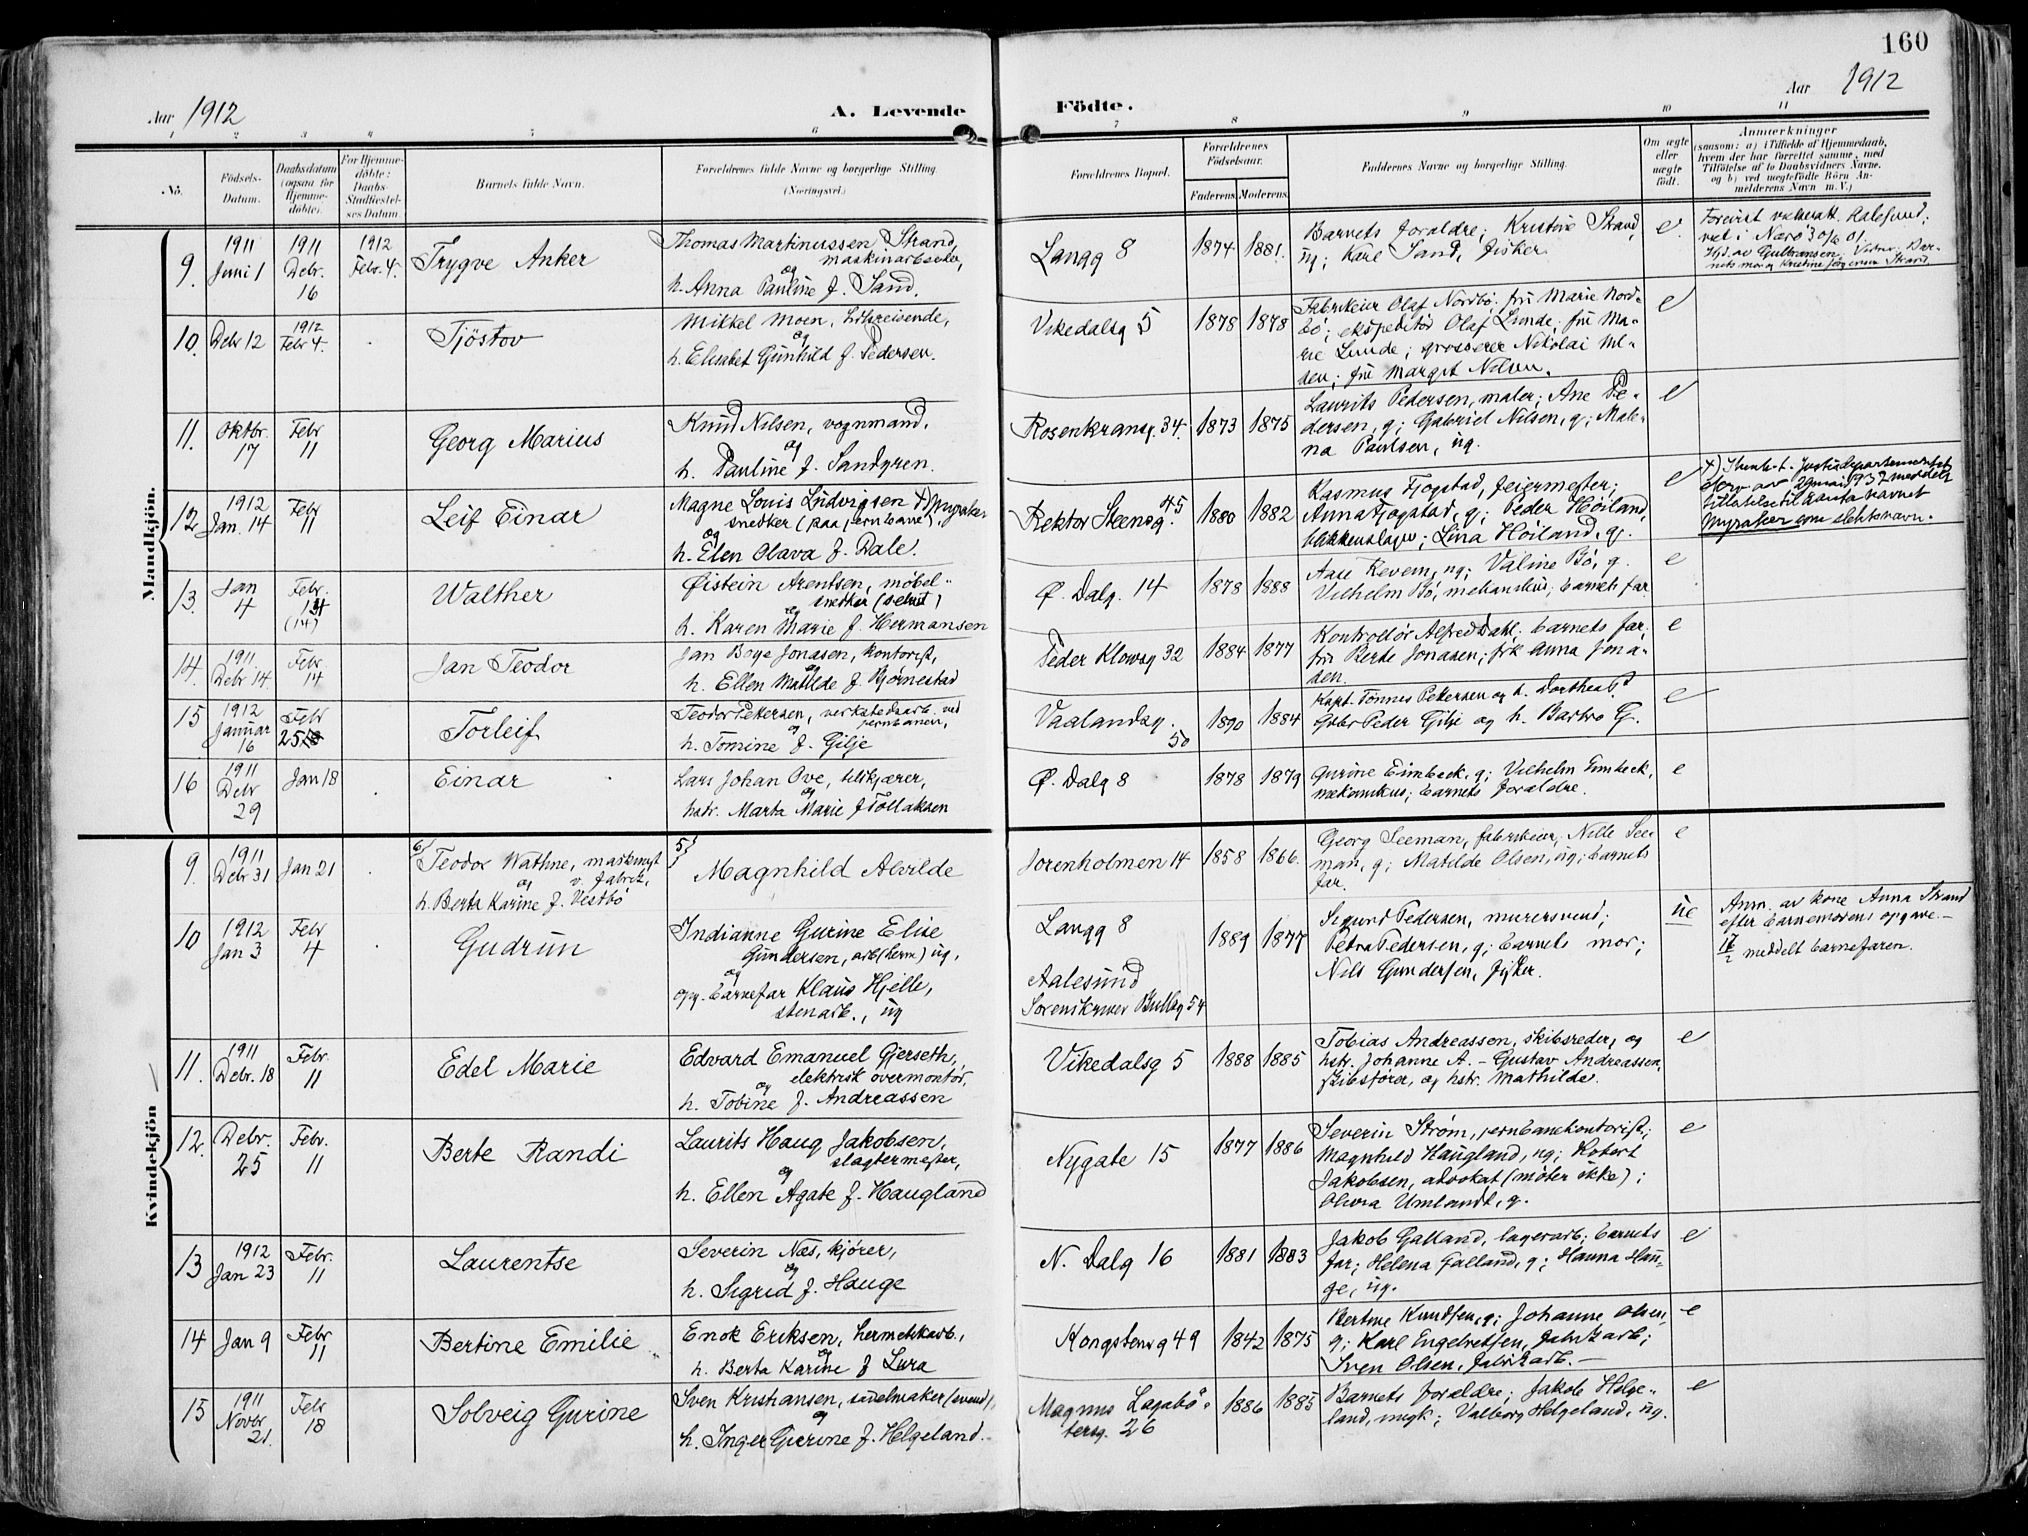 160
Aar 1912
A. Levende
Födte.
Aar 1912
1 2 3 4 5 6 7 8 9 10 11
No.
Födsels-
Datum.
Daabsdatum
(ogsaa for
Hjemme-
döbte).
For Hjemme-
döbte:
Daabs-
Stadfæstel-
ses Datum
Barnets fulde Navn.
Forældrenes fulde Navne og borgerlige Stilling.
(Næringsvei.)
Forældrenes Bopæl.
Forældrenes
Födselsaar.
Faderens
Moderens
Faddernes Navne og borgerlige Stilling.
Om ægte
eller
uægte
födt.
Anmærkninger
(saasom: a) i Tilfælde af Hjemmedaab,
hvem der har forrettet samme, med
Tilföielse af to Daabsvidners Navne,
og b) ved uægtefödte Börn An-
melderens Navn m. V.)
Mandkjön.
9.
1911
Juni 1
1911
Debr.
16
1912
Febr. 4.
Trygve Anker
Thomas Martinussen Strand,
maskinarbeider,
og
h. Anna Pauline f. Sand.
Langg 8
1874
1881.
Barnets forældre; Kristine Strand,
ug; Kare Sand, fisker.
e
10.
Debr 12
1912
Febr 4.
Tjöstov
Mikkel Moen, handelsreisende,
og
h. Elisabet Gunhild f. Pedersen.
Vikedalsg 5
1878
1878
Fabrikeier Olaf Nordbö; fru Marie Nord-
bö; ekspeditör Olaf Lunde; fru Ma-
rie Lunde; grosserer Nikolai Nil-
sen; fru Margit Nilsen.
e
11.
Oktbr.
17
Febr
11
Georg Marius
Knud Nilsen, vognmand,
og
h. Pauline f. Sandgren.
Rosenkransg. 34.
1873
1875
Laurits Pedersen, maler; Ane Pe-
dersen, g; Gabriel Nilsen, g; Male-
na Paulsen, ug.
e
12.
1912
Jan. 14
Febr
11
Leif Einar
Magne Louis Ludvigsen +) Myraker
snedker (paa jernbane)
og
h. Elen Olava f. Dale.
Rektor Steensg. 45
1880
1882
Rasmus Fjogstad, feiermester;
Anna Fjogstad, g; Peder Höiland,
blikkenslager; Lina Höiland, g.
e
+) Justisdepartementet
har av mai 1937 meddelt
tillatelse til å anta navnet
Myraker som slektsnavn.
13.
Jan
4
Febr.
(14)
Walther
Øistein Arentsen, möbel-
snedker (selvst)
og
h. Karen Marie f. Hermansen
Ø. Dalg. 14
1878
1888
Aase Revem, ug; Valine Bö, g.
Vilhelm Bö, mekanikus; barnets far
e
14.
1911
Debr 14.
Febr.
14
Jan Teodor
Jan Boye Jonasen, kontorist,
og
h. Ellen Matilde f. Bjørnestad
Peder Klowsg 32
1884
1877
Kontrollör Alfred Dahl; barnets far;
fru Berte Jonasen; frk Anna Jona-
sen.
e
15
1912
Januar
16
Febr
25
Torleif
Teodor Pettersen, verkstedsarb. ved
jernbanen,
h. Tomine f. Gilje
Vaalandsg.
50
1890
1884
Kapt. Tönnes Pettersen og h. Dorthea P.
Gbr Peder Gilje og h. Barbro G.
e
16
1911
Debr
29
Jan 18
Einar
Lars Johan Ove, blikjærer,
og
hstr. Marta Marie f Tollaksen
Ø. Dalg 8
1878
1879
Gurine Eimbeck, g; Vilhelm Eimbeck,
mekanikus; barnets forældre.
e
Kvindekjön
9.
1911
Debr 31
Jan 21
6)
Teodor Wathne, maskinist
og v. fabrik,
h. Berta Karine f. Vestbö
5)
Magnhild Alvilde
Jorenholmen 14
1858
1866.
Georg Seeman, fabrikeier; Nelle See-
man, g; Matilde Olsen, ug; barnets
far.
e
10
1912
Jan 3
Febr
4
Gudrun
Indianne Gurine Elise
Gundersen, arb (herm) ug,
og
opg. barnefar Klaus Hjelle,
stenarb., ug
Langg 8
Aalesund
Sorenskriver Bullsg 54
1889
1877
Sigurd Pedersen, murersvend;
Petra Pedersen, g; barnets mor;
Nils Gundersen, fisker.
ue
Anm. av kone Anna Strand
efter barnemorens opgave. —
meddelt barnefaren.
11.
1911
Debr. 18
Febr.
11
Edel Marie
Edvard Emanuel Gjerseth,
elektrisk overmontör,
og
h. Tobine f. Andreassen
Vikedalsg 5
1888
1885
Tobias Andreassen, skibsreder, og
hstr. Johanne A. – Gustav Andreassen,
skibsförer, og hstr. Mathilde.
e
12.
Debr.
25
Febr.
11
Berte Randi
Laurits Haug Jakobsen,
slagtermester,
og
h. Ellen Agate f. Haugland
Nygate 15
1877
1886
Severin Ström, jernbanekontorist;
Magnhild Haugland, ug; Robert
Jakobsen, advokat (möter ikke);
Olivia Umlandt, g.
e
13
1912
Jan 23
Febr.
11
Laurentse
Severin Næs, kjører,
og
h. Sigrid f. Hauge
N. Dalg 16
1881
1883
Jakob Galland, lagerarb; barnets
far; Helena Galland, g; Hanna Hau-
ge, ug.
e
14
Jan 9
Febr
11
Bertine Emilie
Enok Eriksen, hermetikkarb.,
og
h. Berta Karine f Lura
Kongstensg 49
1842
1875
Bertine Knudsen, g; Johanne Olsen,
g; Karl Engelretsen, fabrikarb;
Sven Olsen, fabrikarb. —
e
15
1911
Novbr.
21.
Febr
18
Solveig Gurine
Sven Kristiansen, sadelmaker (svend),
og
h. Inger Gurine f. Helgeland.
Magnus Lagabö-
tersg. 26
1886
1885
Barnets forældre; Jakob Helge-
land, ungk; Valborg Helgeland, ug.
e